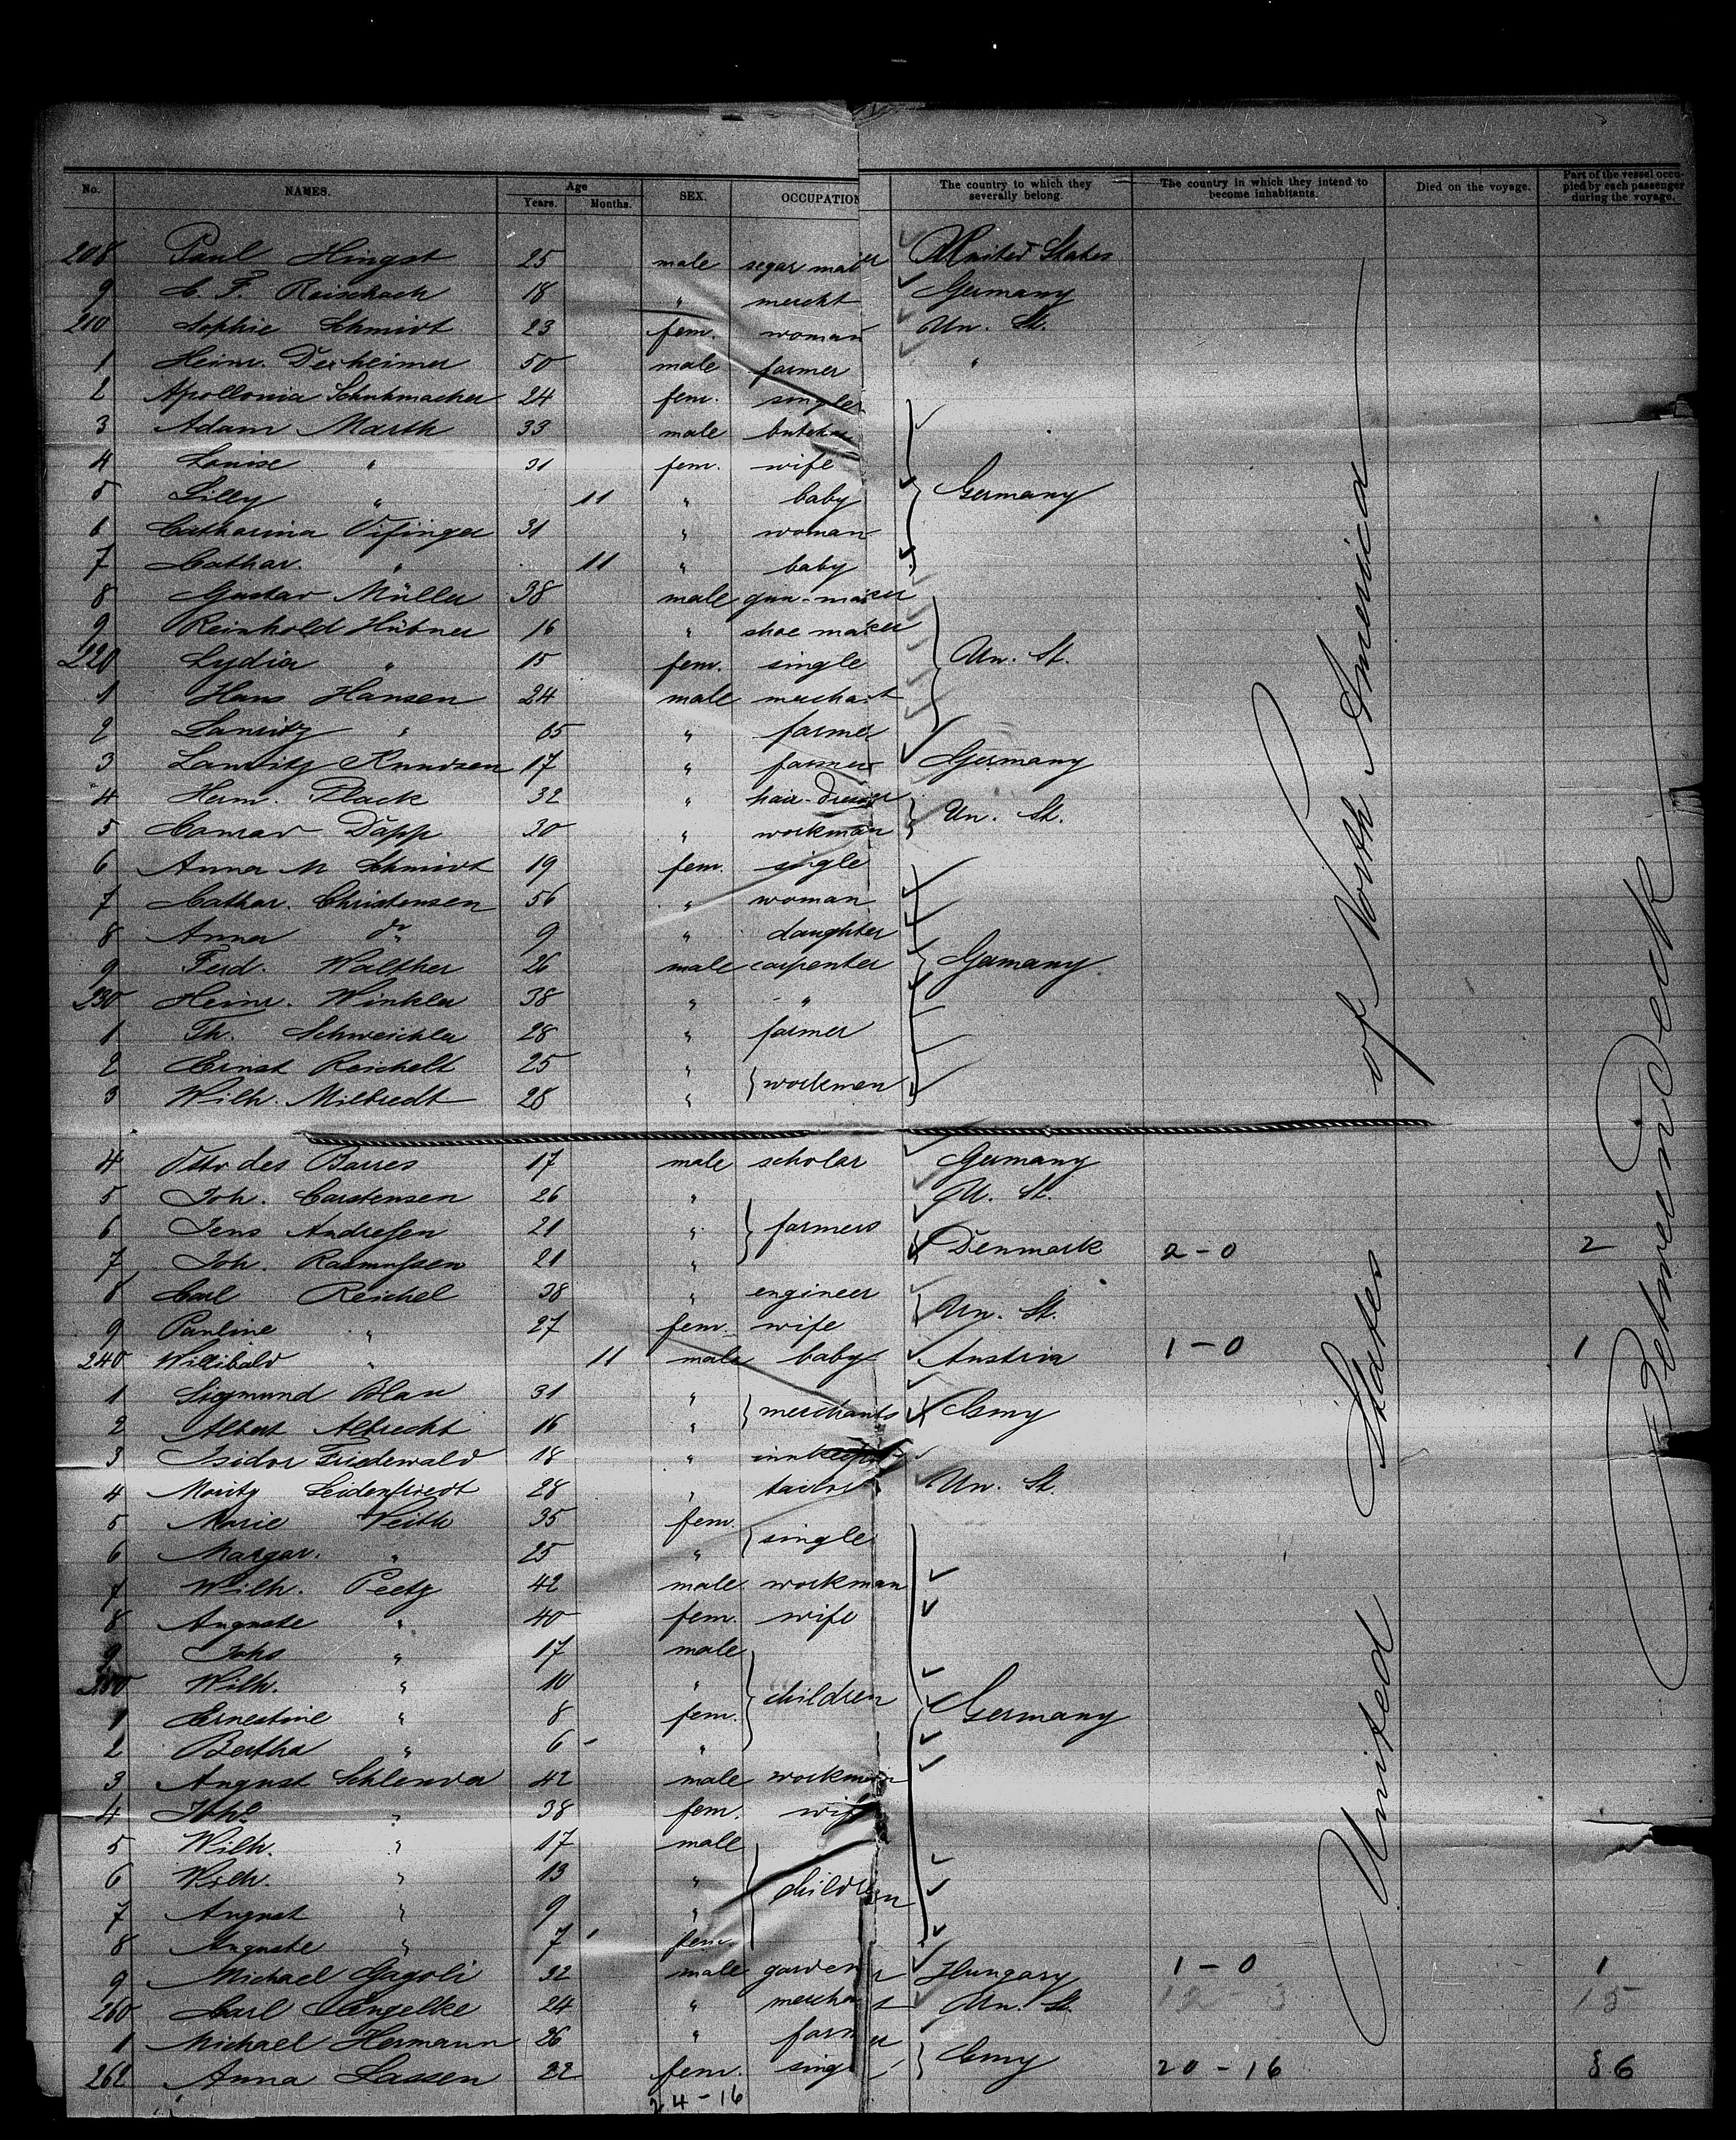 No. NAMES. Age Years. Months. SEX. OCCUPATION The country to which they severally belong. The country in which they intend to become inhabitants. Died on the voyage. Part of the vessel occupied by each passenger during the voyage.
208 Paul Hingst 25 male segar maker United States
9 C. F. Reischach 18 " mercht Germany
210 Sophie Schmidt 23 fem. woman Un. St.
1 Heinr. Dexheimer 50 male farmer "
2 Apollonia Schuhmacher 24 fem. single
3 Adam Marth 33 male butcher
4 Louise " 31 fem. wife
5 Lilly " 11 " baby Germany
6 Catharina 31 " woman
7 Cathar. " 11 " baby
8 Gustav Müller 38 male gun-maker
9 Reinhold Hübner 16 " shoe maker
220 Lydia " 15 fem. single Un. St.
1 Hans Hansen 24 male merchant
2 Lauritz " 65 " farmer
3 Lauritz Knudsen 17 " farmer Germany
4 Herm. Plack 32 " hair-dresser Un. St.
5 Conrad Dapp 30 " workman
6 Anna M Schmidt 19 fem. single
7 Cathar. Christensen 56 " woman
8 Anna do 9 " daughter
9 Ferd. Walther 26 male carpenter Germany
230 Heinr. Winkler 38 " "
1 Th. Schweickler 28 " farmer
2 Ernst Reichelt 25 " workmen
3 Wilh. Milbredt 28 "
4 Otto des Barres 17 male scholar Germany
5 Joh. Carstensen 26 " U. St.
6 Jens Andresen 21 " farmers
7 Joh. Rasmussen 21 " Denmark 2-0 2
8 Carl Reichel 38 " engineer Un. St.
9 Pauline " 27 fem. wife
240 Willibald " 11 male baby Austria 1-0 1
1 Sigmund Blau 31 " merchants Gmy
2 Albert Albrecht 16 "
3 Isidor Friedewald 18 " innkeeper
4 Moritz 28 " tailor Un. St.
5 Marie Veith 35 fem. single
6 Margar. " 25 "
7 Wilh. Peetz 42 male workman
8 Auguste " 40 fem. wife
9 Johs " 17 male children
250 Wilh. " 10 "
1 Ernestine " 8 fem. Germany
2 Bertha " 6 - "
3 August Schlender 42 male workman
4 " 38 fem. wife
5 Wilh. " 17 male children
6 Wilh. " 13 "
7 August " 9 "
8 Auguste " 7 fem.
9 Michael Gagoli 32 male gardener Hungary 1-0 1
260 Carl Engelke 24 " merchant Un. St. 12 3 15
1 Michael Hermann 26 " farmer Gmy
262 Anna Lassen 22 fem. single 20-16 36
24-16
United States of North America
Between Deck